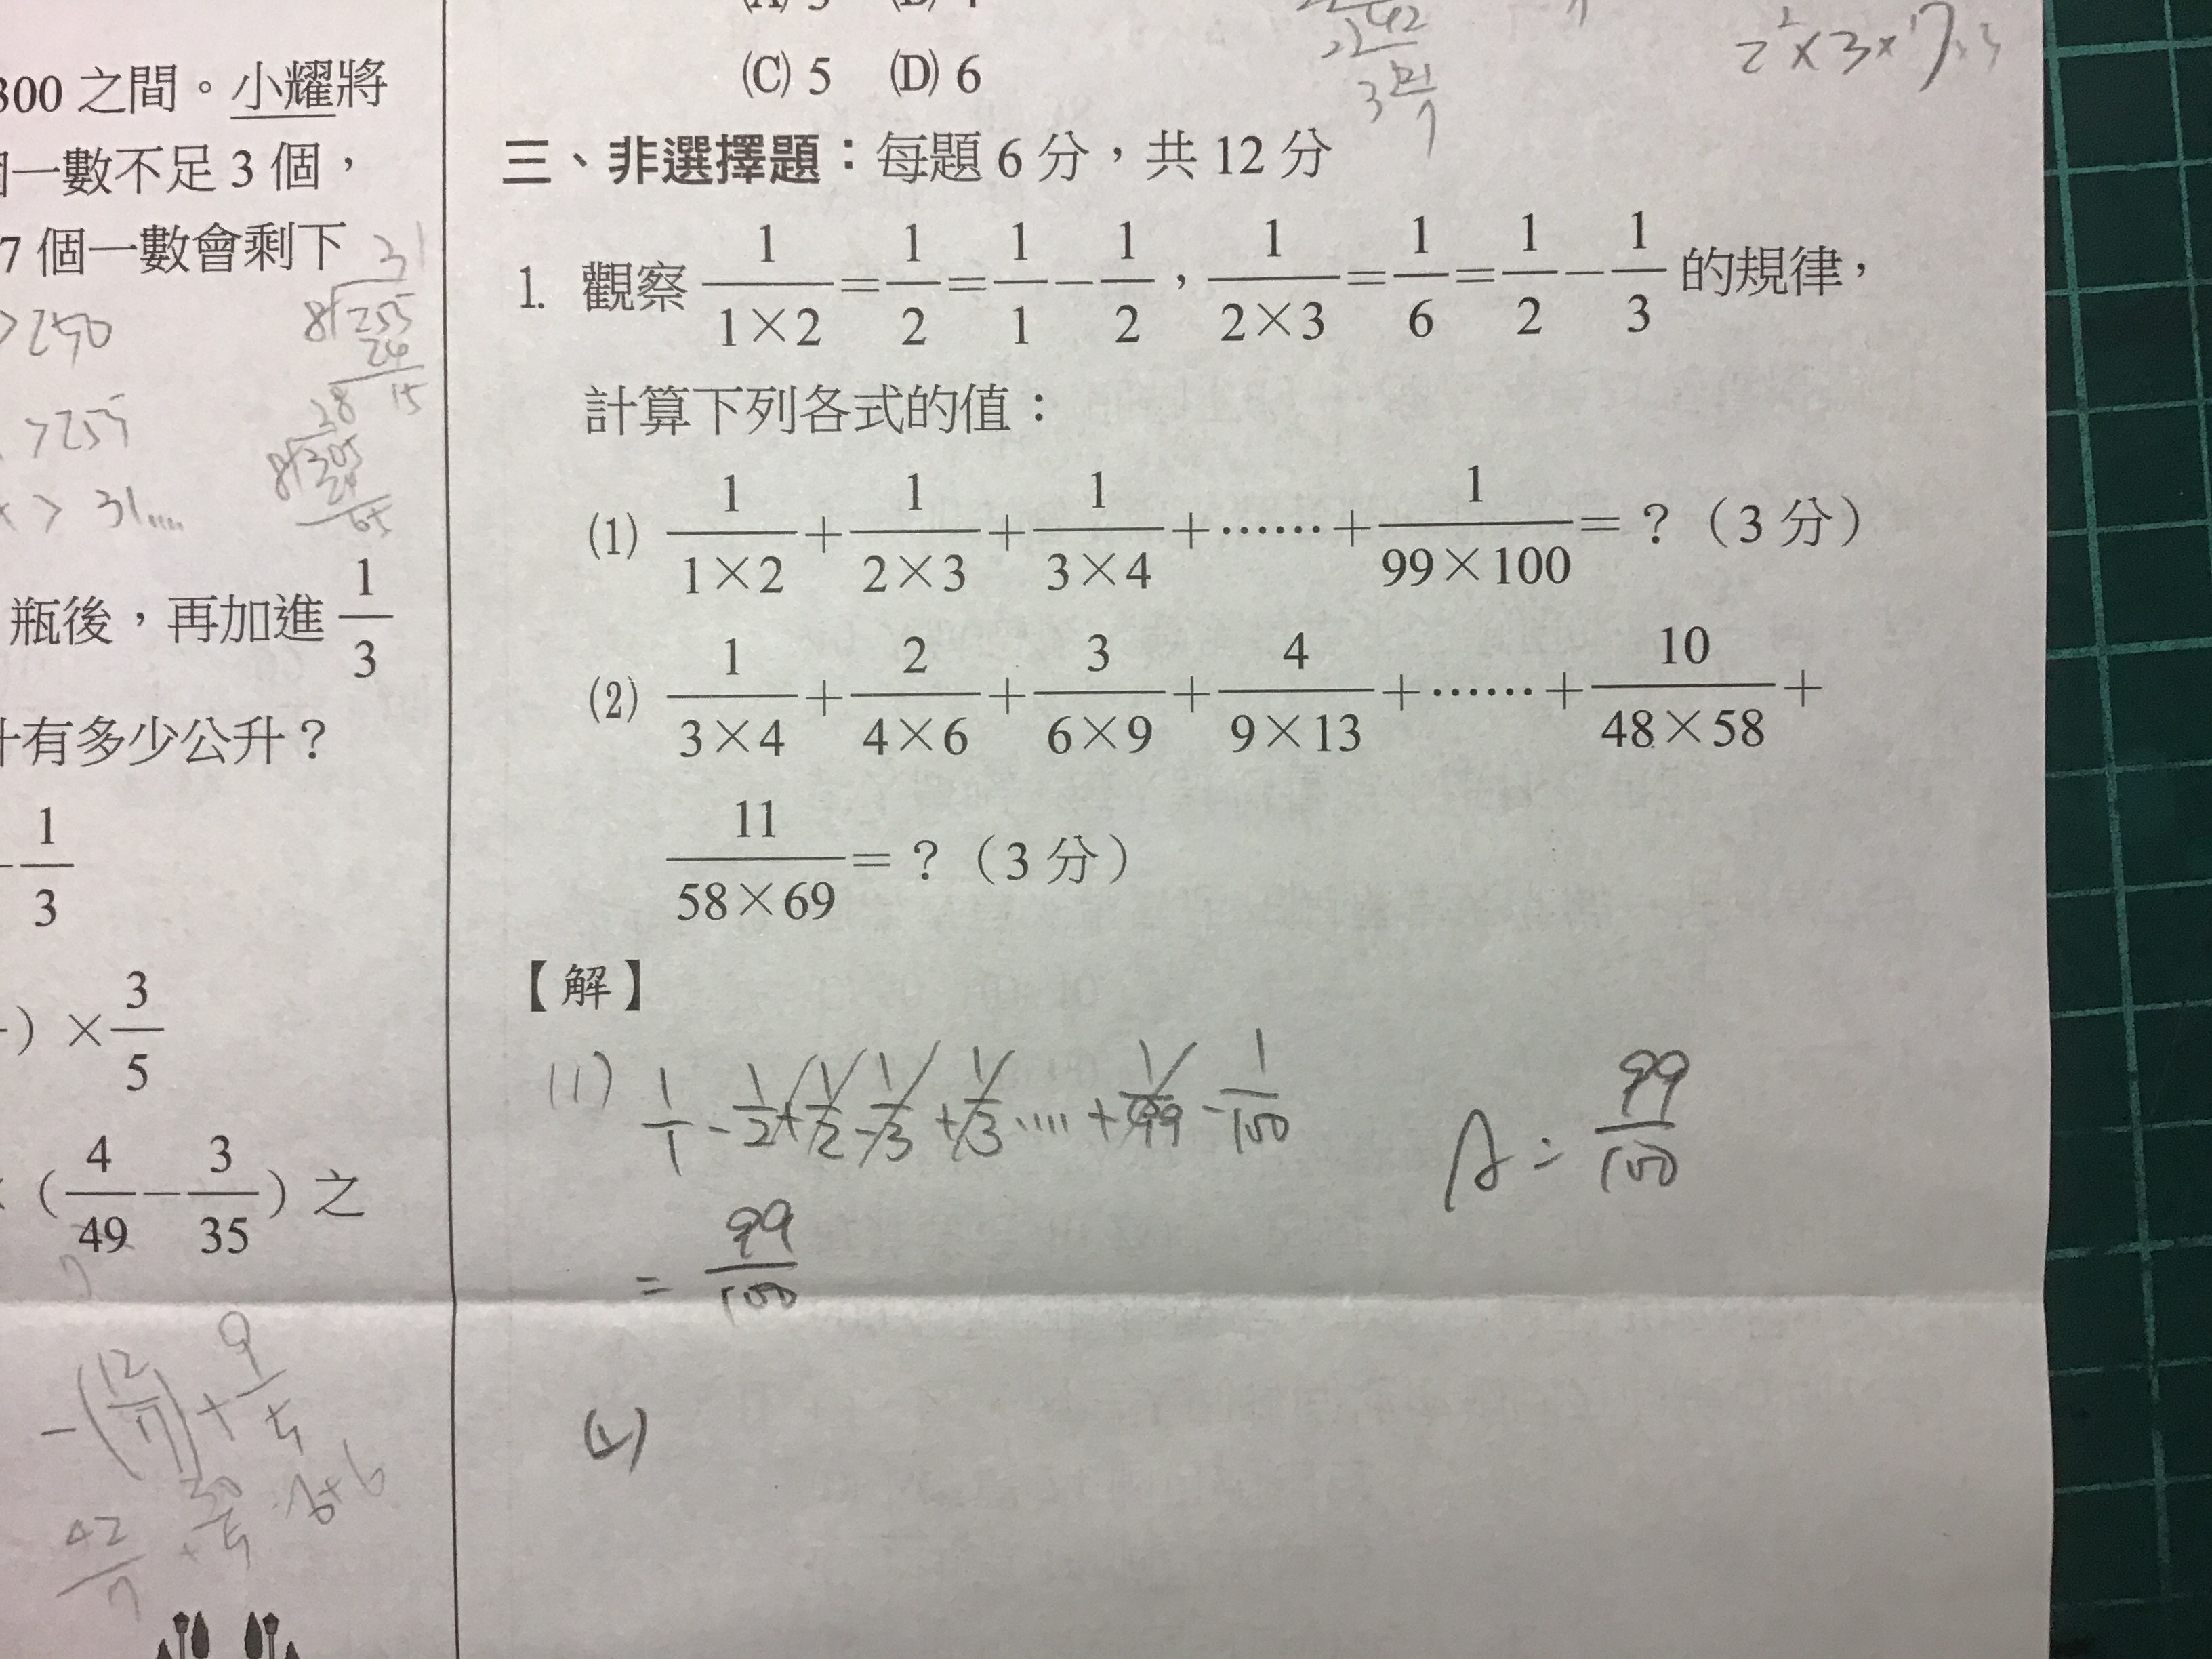 300 之間。小耀將
一數不足 3 個，
7 個一數會剩下
31
8 255
24
15
>250
>255
28
8 305
24
65
x > 31....
瓶後，再加進 1/3
有多少公升？
1/3
) × 3/5
( 4/49 − 3/35 ) 之
−(12/7) + 9/5
42/7 + 30/5
(C) 5 (D) 6
2² × 3 × 7
三、非選擇題：每題 6 分，共 12 分
1. 觀察 1/(1×2) = 1/2 = 1/1 − 1/2，1/(2×3) = 1/6 = 1/2 − 1/3 的規律，
計算下列各式的值：
(1) 1/(1×2) + 1/(2×3) + 1/(3×4) + …… + 1/(99×100) = ？（3 分）
(2) 1/(3×4) + 2/(4×6) + 3/(6×9) + 4/(9×13) + …… + 10/(48×58) +
11/(58×69) = ？（3 分）
【解】
(1) 1/1 - 1/2 + 1/2 - 1/3 + 1/3 .... + 1/99 - 1/100
= 99/100
A = 99/100
(2)